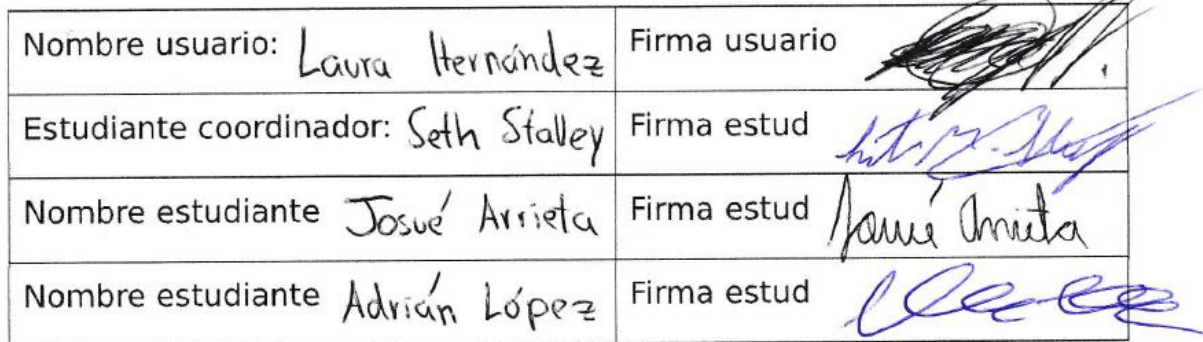 Nombre usuario: Laura Hernández Firma usuario
Estudiante coordinador: Seth Stalley Firma estud
Nombre estudiante Josué Arrieta Firma estud Josué Arrieta
Nombre estudiante Adrián López Firma estud